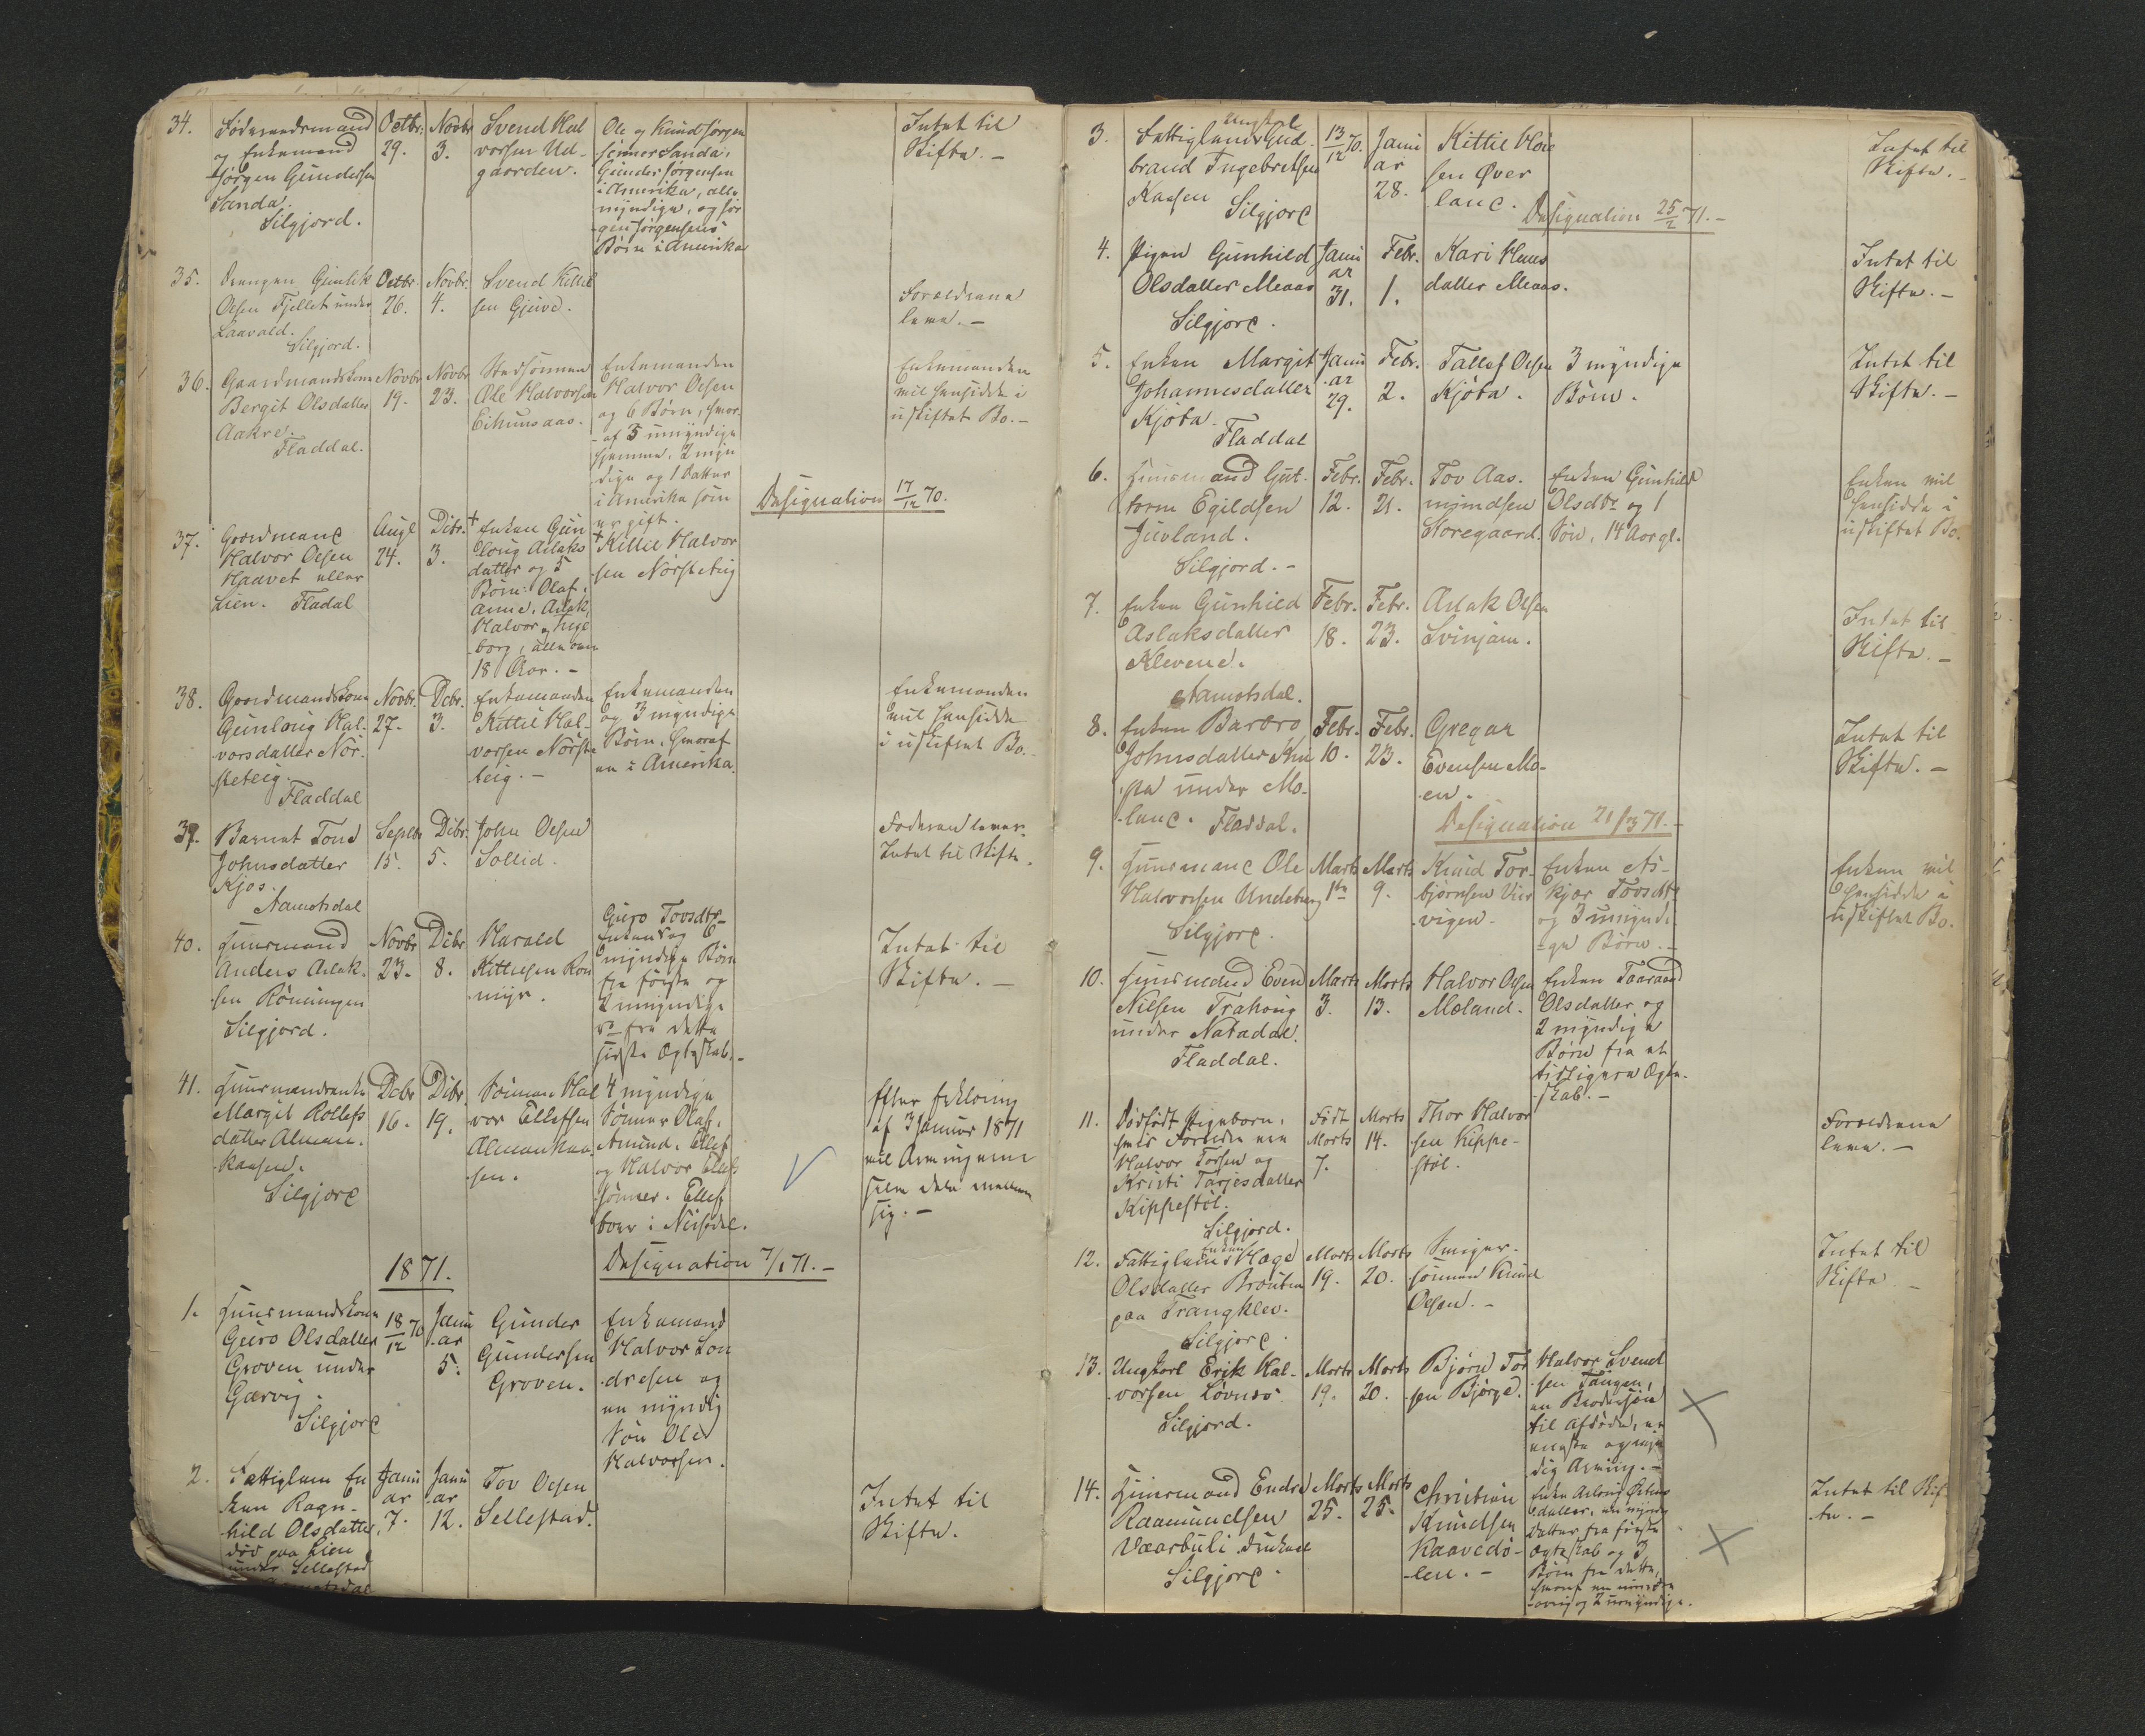 34.
Føderaadsmand
og Enkemand
Jørgen Gundersen
Sanda.
Silgjord.
Octbr.
29.
Novbr
3.
Svend Hal
vorsen Ud-
gaarden.
Ole og Knud Jørgen
sønner Sanda,
Gunder Jørgensen
i Amerika, alle
myndige, og Jør
gen Jørgensens
Børn i Amerika
Intet til
Skifte. -
35.
Drengen Gunlik
Olsen Fjellet under
Laavald.
Silgjord.
Octbr.
26.
Novbr.
4.
Svend Kittil
sen Gjuve.
Forældrene
leve. -
36.
Gaardmandskone
Bergit Olsdatter
Aakre.
Fladdal.
Novbr
19.
Novbr
23.
Stedsønnen
Ole Halvorsen
Eikunsaas.
Enkemanden
Halvor Olsen
og 6 Børn, hvor-
af 3 umyndige
hjemme, 2 myn
dige og 1 Datter
i Amerika som
er gift.
Enkemanden
vil hensidde i
uskiftet Bo. -
Designation 17/12 70.
37.
Gaardmand
Halvor Olsen
Haavet eller
Lien. Fladal
Augt
24.
Dcbr.
3.
+ Enken Gun
loug Aslaks
datter og 5
Børn: Olaf,
Anne, Aslak,
Halvor og Inge
borg, alle over
18 Aar. -
+ Kittil Halvor
sen Nørsteteig
38.
Gaardmandskone
Gunloug Hal-
vorsdatter Nør-
steteig.
Fladdal
Novbr.
27.
Dcbr.
3.
Enkemanden
Kittil Hal-
vorsen Nørste
teig. -
Enkemanden
og 3 myndige
Børn, hvoraf
en i Amerika.
Enkemanden
vil hensidde
i uskiftet Bo.
39.
Barnet Tone
Johnsdatter
Kjos.
Aamotsdal
Septbr
15.
Dcbr.
5.
John Olsen
Sollid.
Faderen lever.
Intet til Skifte.
40.
Huusmand
Anders Aslak-
sen Rønningen
Silgjord.
Novbr
23.
Dcbr
8.
Harald
Kittilsen Røn
Guro Tovsdtr.
Enken og 6
myndige Børn
fra første og
2 umyndige
fra dette
sidste Ægteskab. -
Intet til
Skifte. -
41.
Huusmandsenke
Margit Rollefs
datter Alman-
kaasen.
Silgjord
Dcbr
16.
Dcbr.
19.
Sønnen Hal
vor Ellefsen
Almankaa-
sen.
4 myndige
Sønner Olaf,
Amund, Ellef
og Halvor Ellefs
sønner. Ellef
boer i Nissedal.
Efter Erklæring
af 3 Januar 1871
vil Arvingerne
selv dele mellem
sig. -
1871.
Designation 7/1 71. -
1.
Huusmandskone
Guro Olsdatter
Groven under
Garvig.
Silgjord
18/12 70
Janu
ar
5.
Gunder
Gundersen
Groven.
Enkemand
Halvor Son
dresen og
en myndig
Søn Ole
Halvorsen.
2.
Fattiglem En
ken Ragn-
hild Olsdatter,
død paa Lien
under Sellestad
Janu
ar
7.
Janu
ar
12.
Tov Olsen
Sellestad.
Intet til
Skifte.
3.
Ungkarl
Fattiglem Gud-
brand Ingebretsen
Kaasen
Silgjord
13/12 70.
Janu
ar
28.
Kittil
sen Øver
land.
Designation 25/2 71. -
Intet til
Skifte. -
4.
Pigen Gunhild
Olsdatter Meaas
Silgjord.
Janu
ar
31.
Febr.
1.
Kari Hans
datter Meaas.
Intet til
Skifte. -
5.
Enken Margit
Johannesdatter
Kjøta.
Fladdal
Janu
ar
29.
Febr.
2.
Tallef Olsen
Kjøta.
3 myndige
Børn.
Intet til
Skifte. -
6.
Huusmand Gut-
torm Egildsen
Juvland.
Silgjord. -
Febr.
12.
Febr.
21.
Tov Aas-
mundsen
Storegaard.
Enken Gunhild
Olsdtr og 1
Søn, 14 Aar gl.
Enken vil
hensidde i
uskiftet Bo.
7.
Enken Gunhild
Aslaksdatter
Klevene.
Aamotsdal.
Febr.
18.
Febr.
23.
Aslak Olsen
Svinjam.
Intet til
Skifte. -
8.
Enken Barbro
Johnsdatter
under Mo-
land. Fladdal.
Febr.
10.
Febr.
23.
Gregar
Evensen Mo-
en.
Designation 21/3 71. -
Intet til
Skifte. -
9.
Huusmand Ole
Halvorsen Undeberg
Silgjord.
Marts
1te
Marts
9.
Knud Tor-
bjørnsen
vigen.
Enken As-
kjær Tovsdtr
og 3 umynd-
ige Børn. -
Enken vil
hensidde i
uskiftet Bo.
10.
Huusmand Even
Nielsen
under Natadal.
Fladdal.
Marts
3.
Marts
13.
Halvor Olsen
Moland.
Enken Taaraand
Olsdatter og
2 myndige
Børn fra et
tidligere Ægte-
skab. -
11.
Dødfødt Pigebarn,
hvis Forældre ere
Halvor Torsen og
Kristi Tarjesdatter
Kippestøl.
Silgjord.
Født
Marts
7.
Marts
14.
Thor Halvor
sen Kippe-
støl.
Forældrene
leve. -
12.
Enken
Fattiglem Hæge
Olsdatter Brouten
paa Trangklev.
Silgjord.
Marts
19.
Marts
20.
Sviger-
sønnen Knud
Olsen. -
Intet til
Skifte. -
13.
Ungkarl Erik Hal-
vorsen Løvnes
Silgjord.
Marts
19.
Marts
20.
Bjørn Tor
sen Bjørge.
Halvor Svend
sen Tangen,
en Brodersøn
til Afdøde, er
eneste og myn
dig Arving. -
14.
Huusmand Endre
Raamundsen
Vaarbuli
Silgjord.
Marts
25.
Marts
25.
Christian
Knudsen
Kaavedø-
len. -
Enke Aslaug
datter, en myndig
Datter fra første
Ægteskab og 3
Børn fra dette,
hvoraf en
og 2 umyndige.
Intet til Skif-
te. -